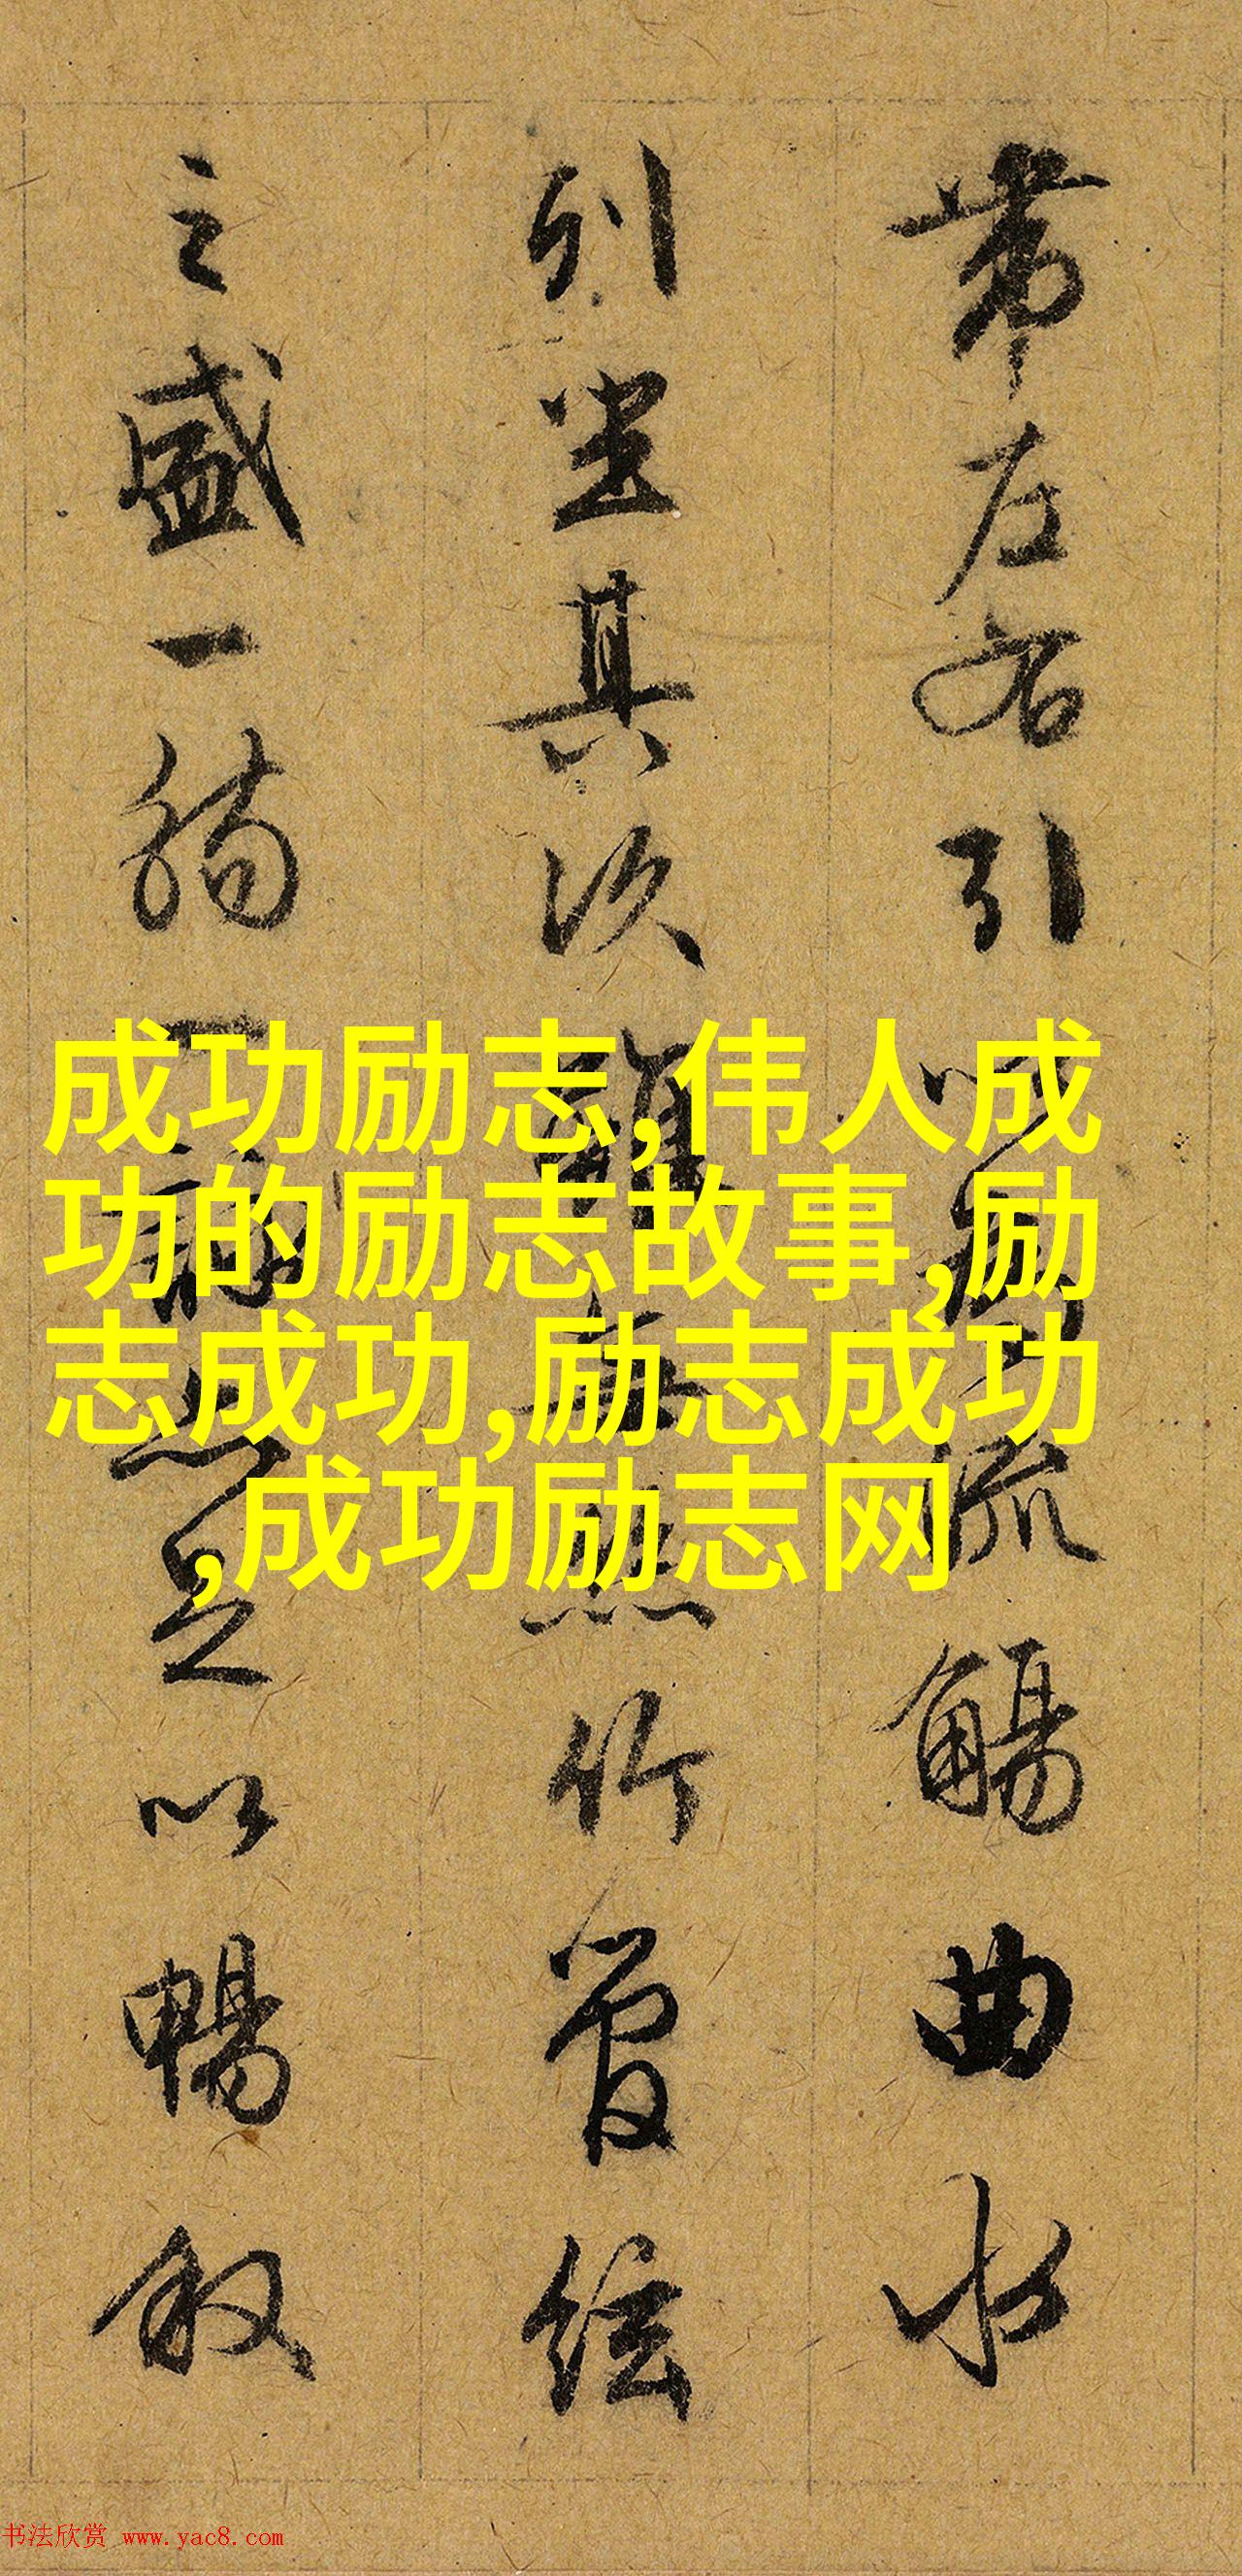 帶左右引以為流觴曲水
列坐其次雖無絲竹管絃
之盛一觴一詠亦足以暢敘
成功励志,伟人成
功的励志故事,励
志成功,励志成功
,成功励志网
书法欣赏 www.yac8.com